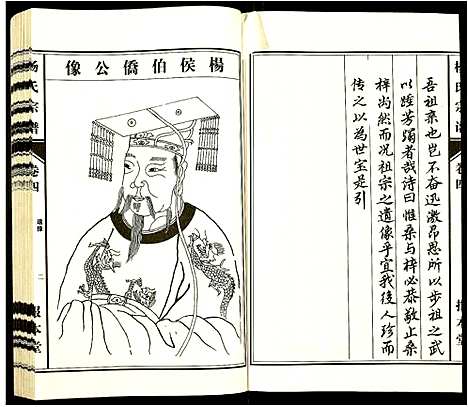 吾祖來也豈不奮迅激昂思所以步祖之武
以踵芳躅者哉詩曰惟桑與梓必恭敬止桑
梓尚然而况祖宗之遺像乎宜我後人珍而
传之以為世宝是引
楊氏宗譜
卷四
楊侯伯僑公像
楊氏宗譜
卷四
遺像
二
報本堂